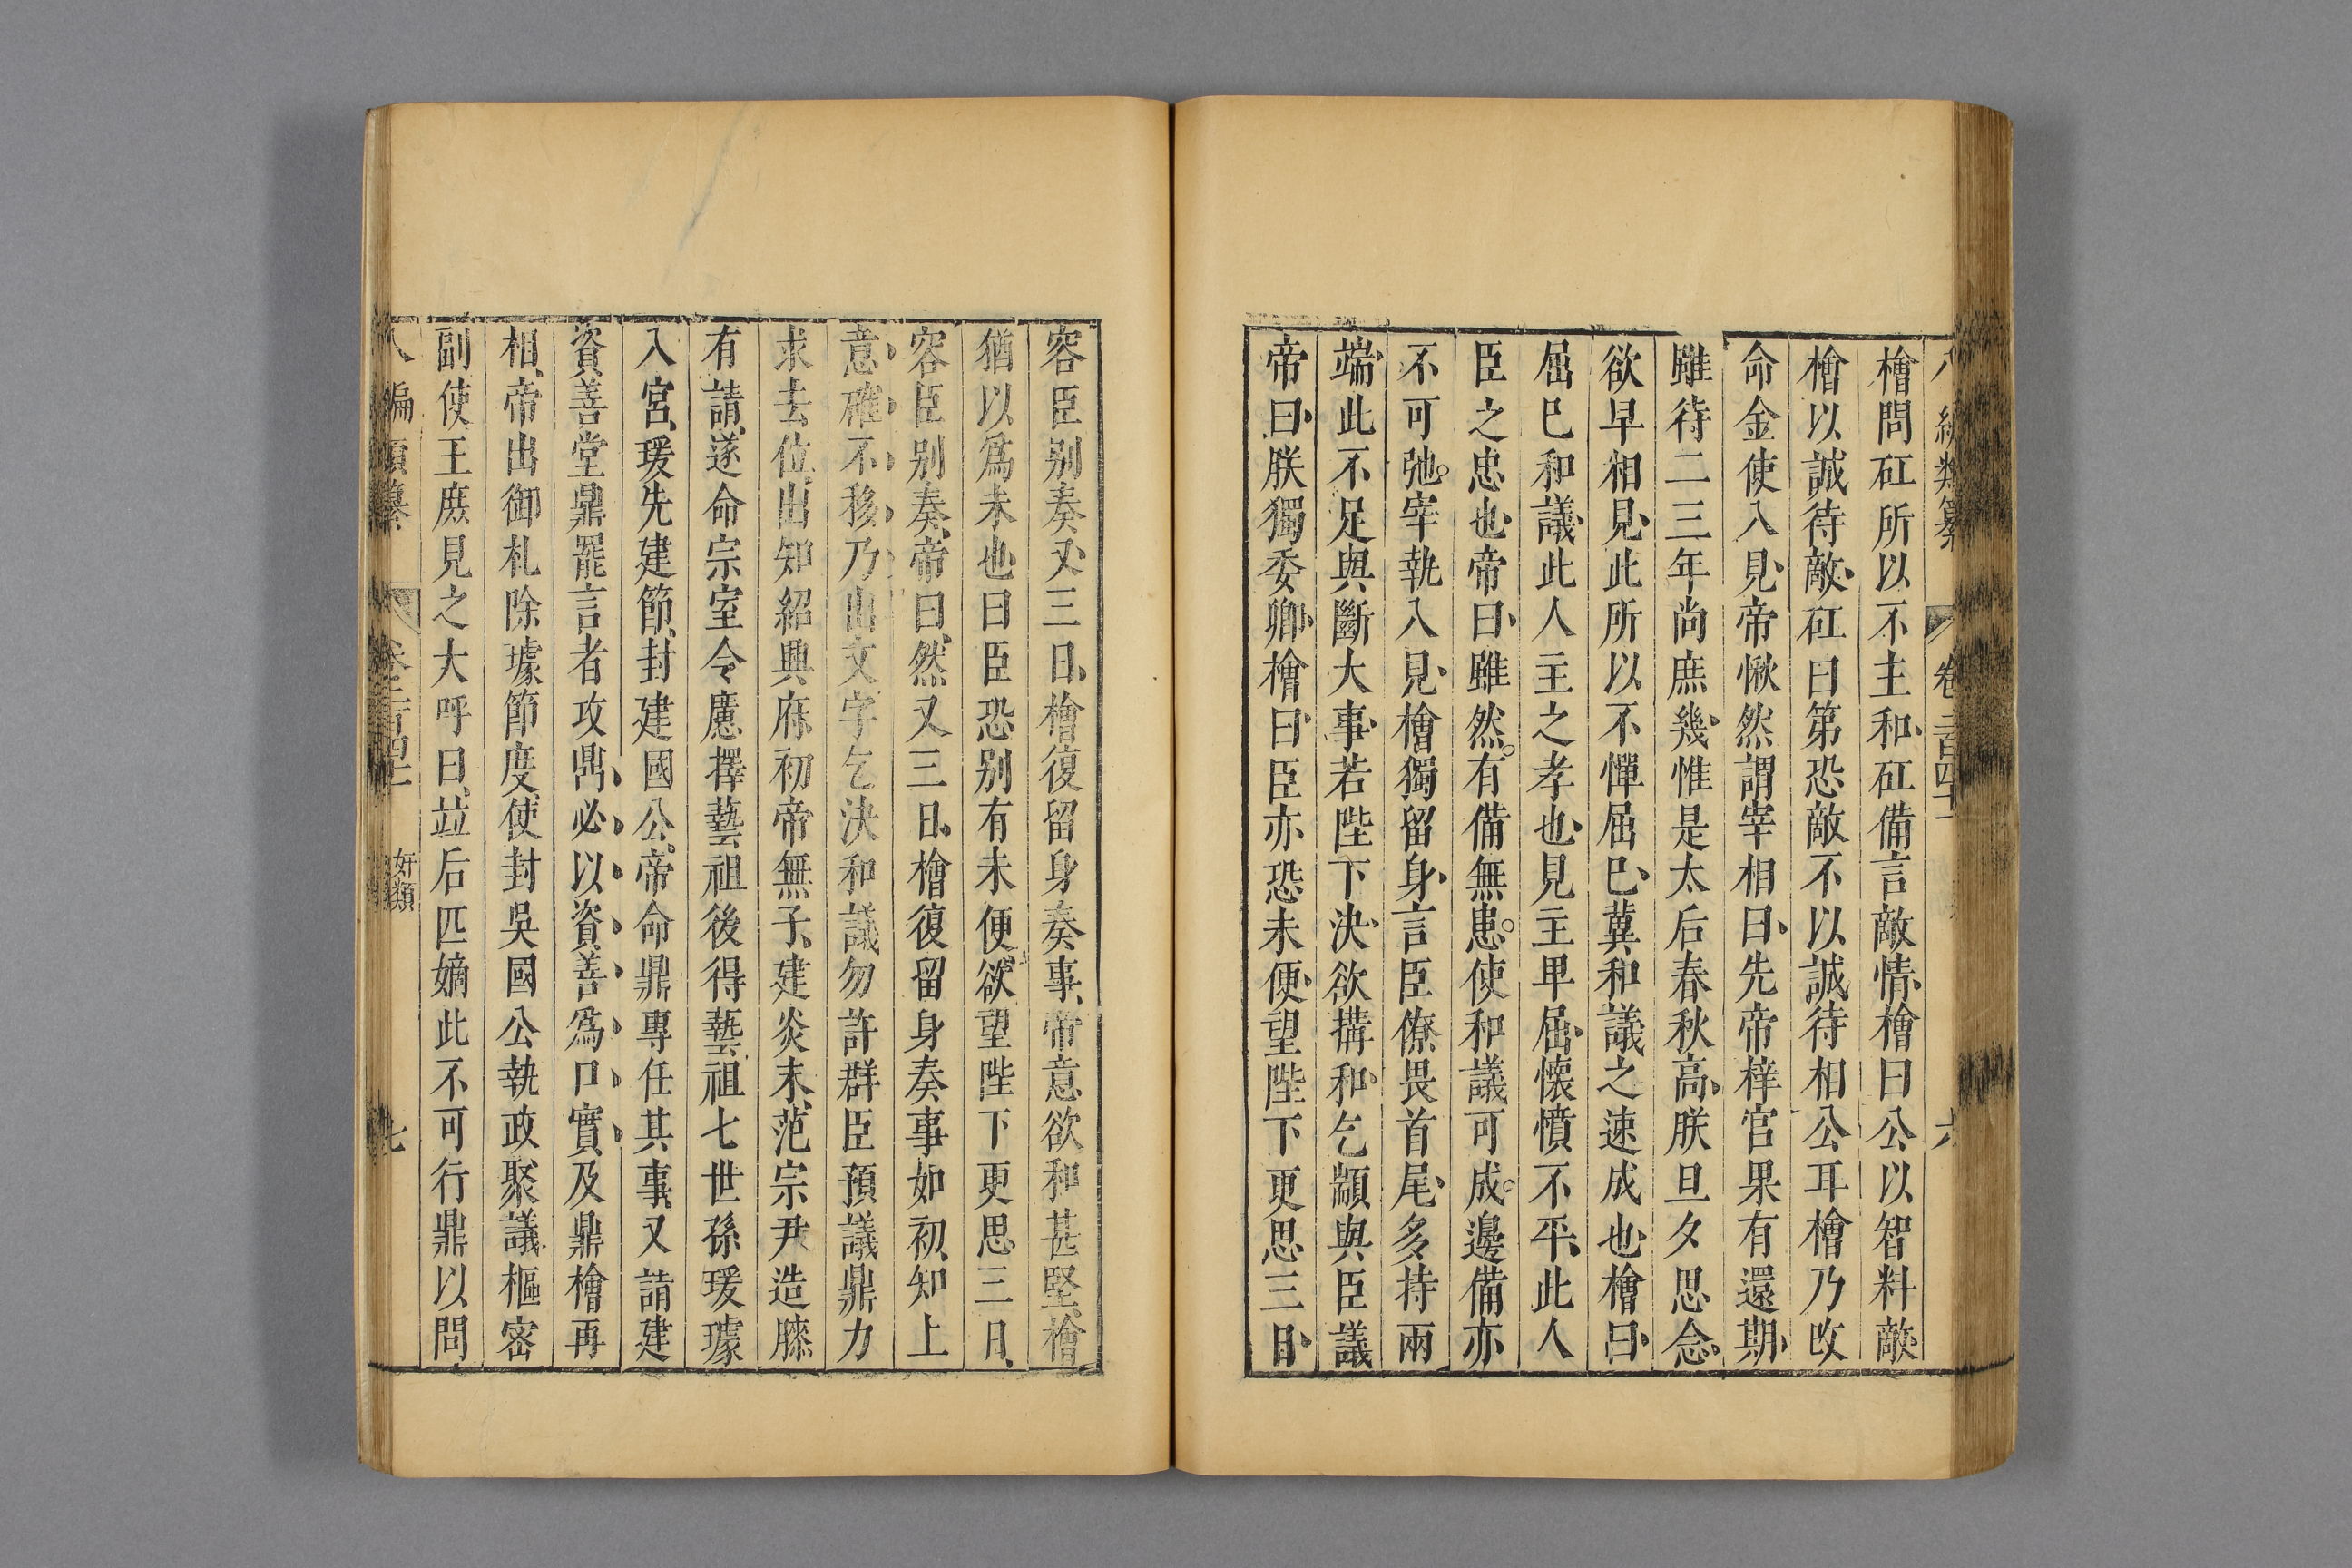 類纂 卷二百四十 六
檜問矼所以不主和矼備言敵情檜曰公以智料敵
檜以誠待敵矼曰第恐敵不以誠待相公耳檜乃改
命金使入見帝愀然謂宰相曰先帝梓宫果有還期
雖待二三年尚庶幾惟是太后春秋高朕旦夕思念
欲早相見此所以不憚屈已冀和議之速成也檜曰
屈已和議此人主之孝也見主卑屈懐憤不平此人
臣之忠也帝曰雖然有備無患使和議可成邊備亦
不可弛宰執入見檜獨留身言臣僚畏首尾多持兩
端此不足與斷大事若陛下決欲搆和乞顓與臣議
帝曰朕獨委卿檜曰臣亦恐未便望陛下更思三日
容臣别奏又三日檜復留身奏事帝意欲和甚堅檜
猶以爲未也曰臣恐别有未便欲望陛下更思三日
容臣别奏帝曰然又三日檜復留身奏事如初知上
意確不移乃出文字乞決和議勿許群臣預議鼎力
求去位出知紹興府初帝無子建炎末范宗尹造膝
有請遂命宗室令懬擇藝祖後得藝祖七世孫瑗璩
入宮瑗先建節封建國公帝命鼎專任其事又請建
資善堂鼎罷言者攻鼎必以資善爲口實及鼎檜再
相帝出御札除璩節度使封吳國公執政聚議樞密
副使王庶見之大呼曰竝后匹嫡此不可行鼎以問
八編類纂 卷二百四十 奸類 七